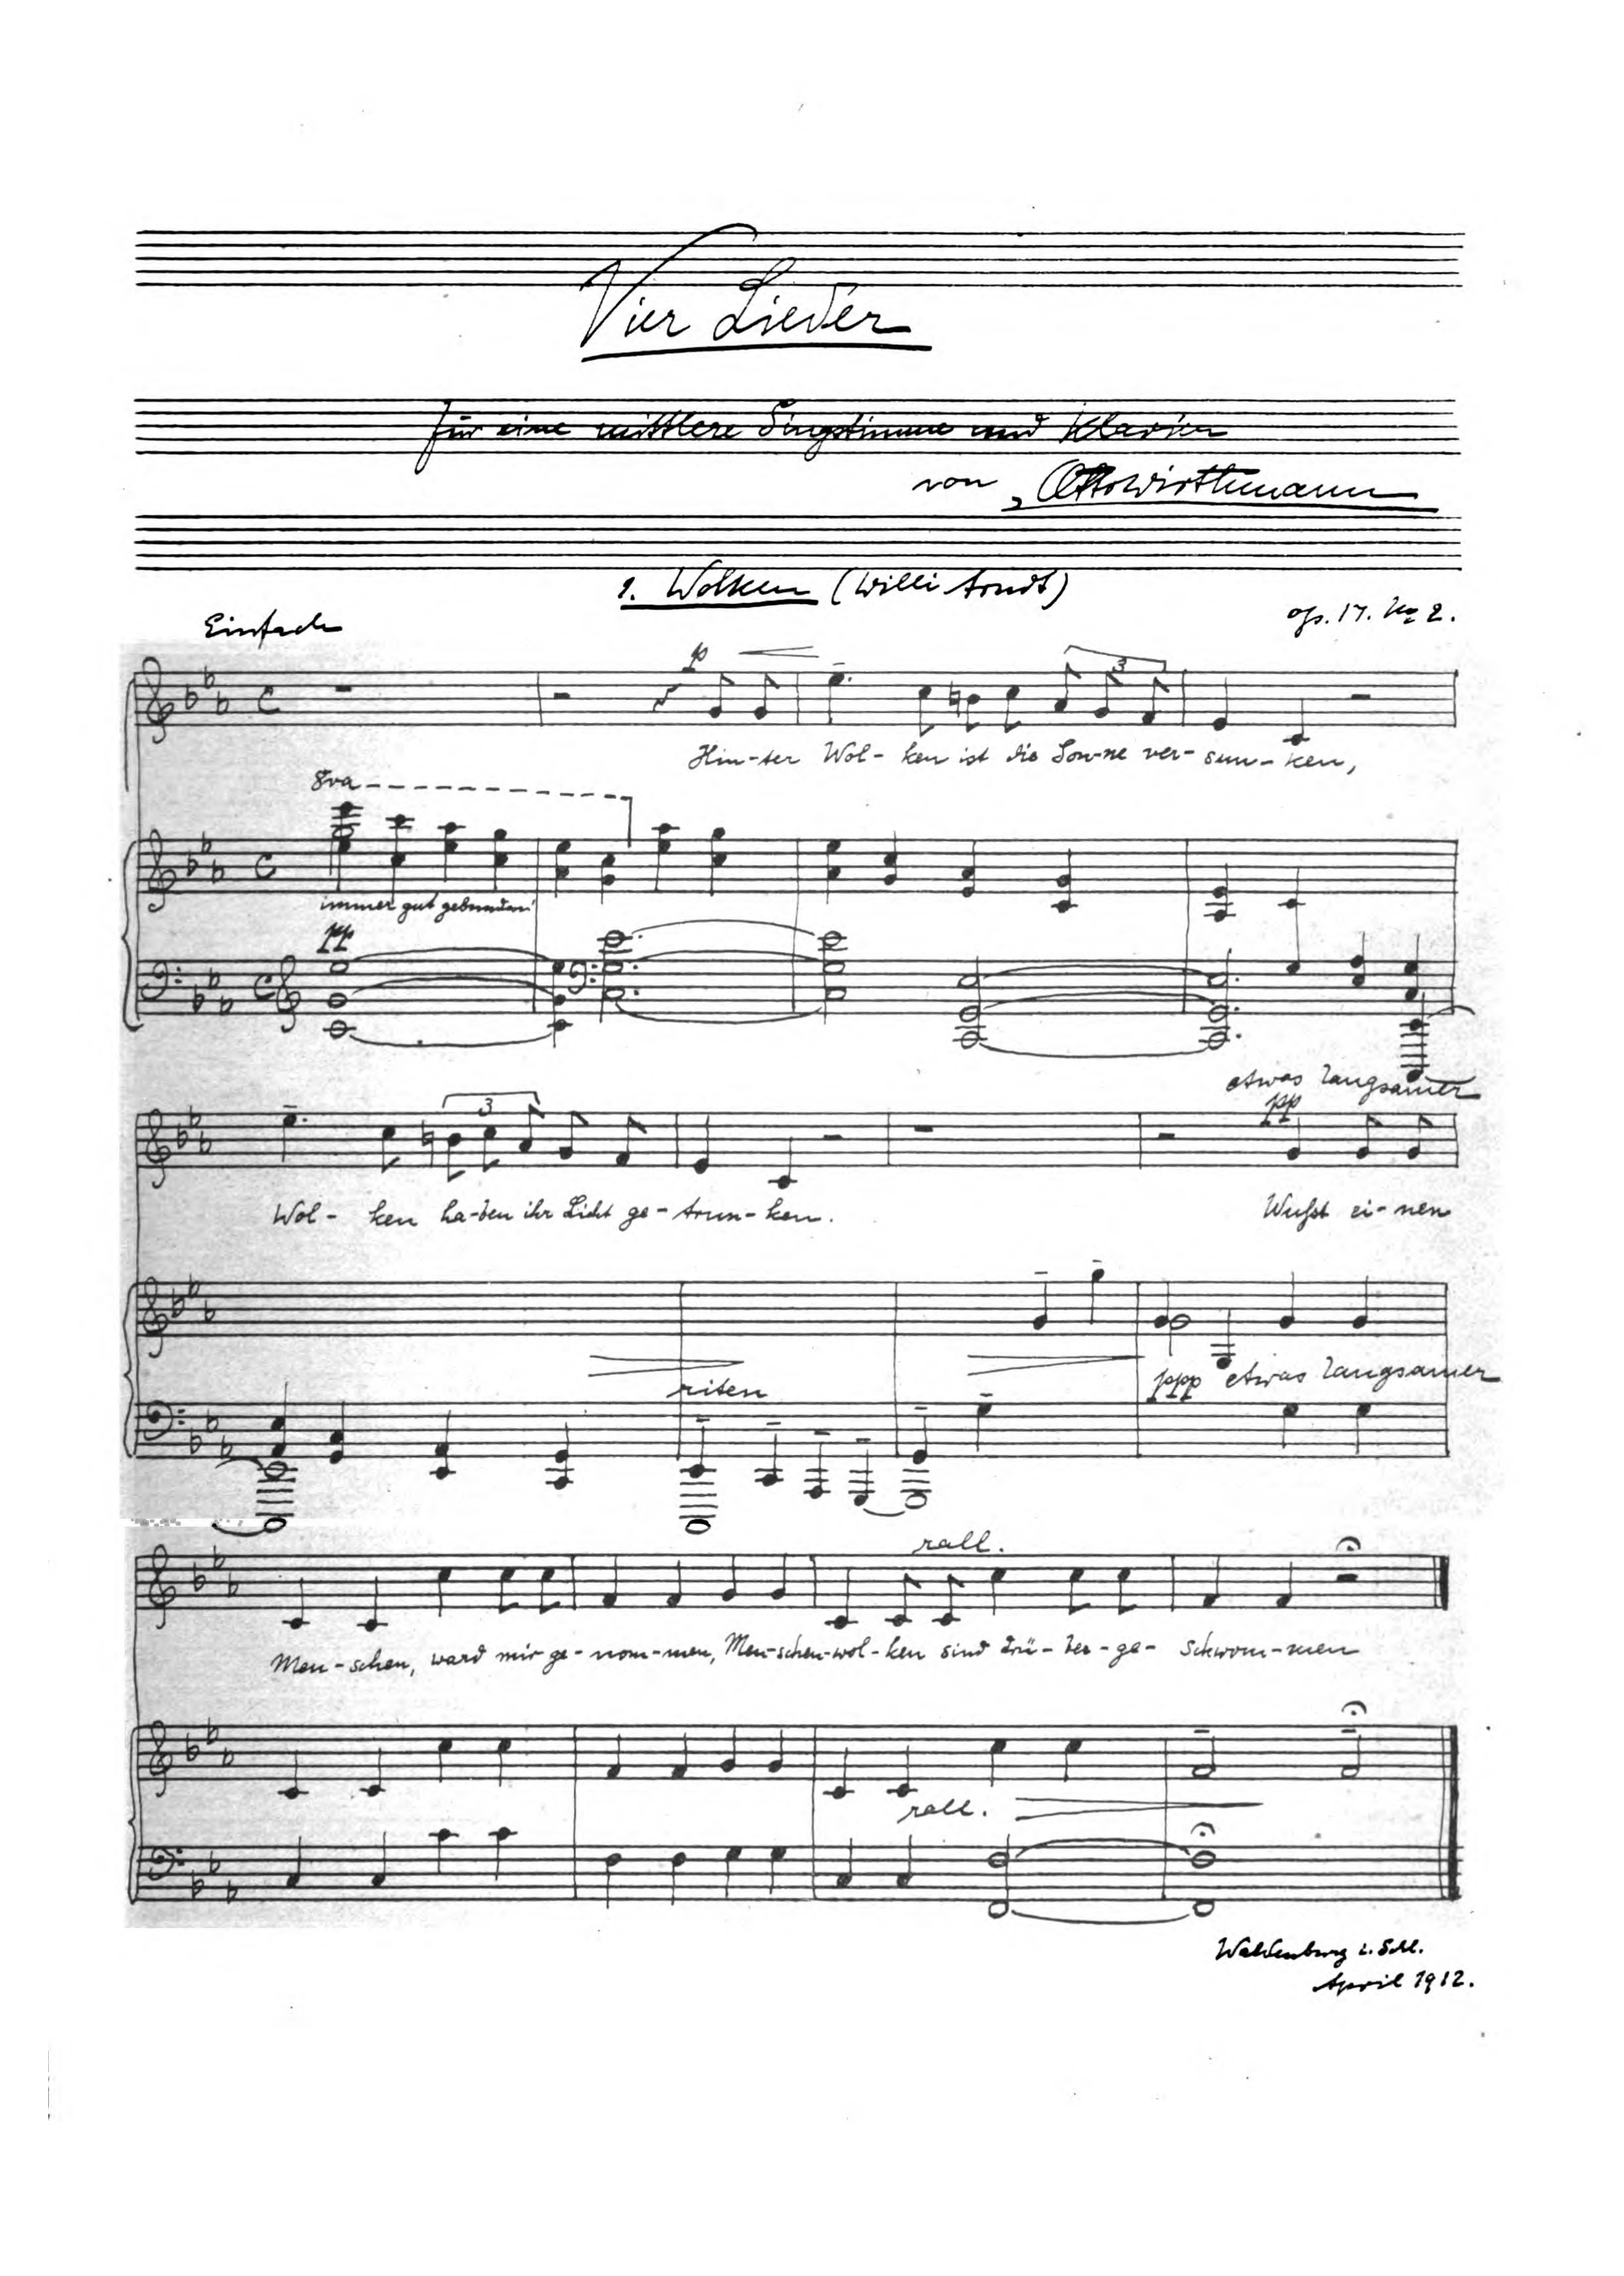 Vier Lieder
für eine mittlere Singstimme und Klavier
von Otto Wirthmann
1. Wolken (Willi Arndt)
Einfach
op. 17. No 2.
p
3
Hin-ter Wol-ken ist die Son-ne ver-sun-ken,
8va
immer gut gebunden!
pp
etwas langsamer
pp
3
Wol-ken ha-ben ihr Licht ge-trun-ken. Wußt ei-nen
riten
ppp etwas langsamer
rall.
Men-schen, ward mir ge-nom-men, Men-schen-wol-ken sind drü-ber-ge-schwom-men
rall.
Waldenburg i. Schl.
April 1912.